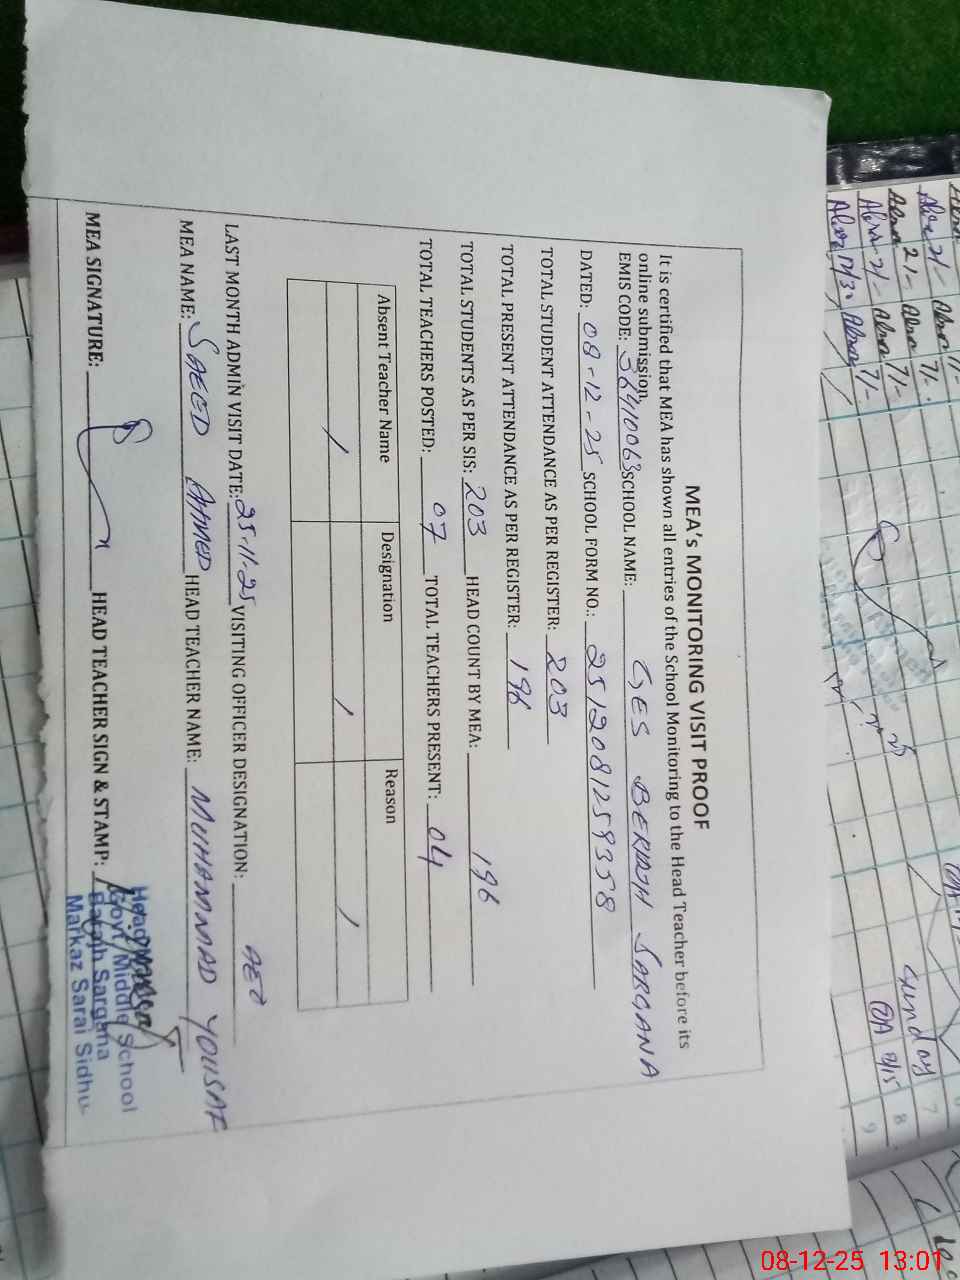 MEA's MONITORING VISIT PROOF
It is certified that MEA has shown all entries of the School Monitoring to the Head Teacher before its
online submission.
EMIS CODE: 36410063 SCHOOL NAME: GES BERAJH SARGANA
DATED: 08-12-25 SCHOOL FORM NO.: 2512081259358
TOTAL STUDENT ATTENDANCE AS PER REGISTER: 203
TOTAL PRESENT ATTENDANCE AS PER REGISTER: 196
TOTAL STUDENTS AS PER SIS: 203 HEAD COUNT BY MEA: 196
TOTAL TEACHERS POSTED: 07 TOTAL TEACHERS PRESENT: 04
Absent Teacher Name Designation Reason
/ / /
LAST MONTH ADMIN VISIT DATE: 25-11-25 VISITING OFFICER DESIGNATION: AEO
MEA NAME: SAEED AHMED HEAD TEACHER NAME: MUHAMMAD YOUSAF
MEA SIGNATURE: HEAD TEACHER SIGN & STAMP:
Govt. Middle School
Barajh Sargana
Markaz Sarai Sidhu
Sunday
7
8
9
08-12-25 13:01